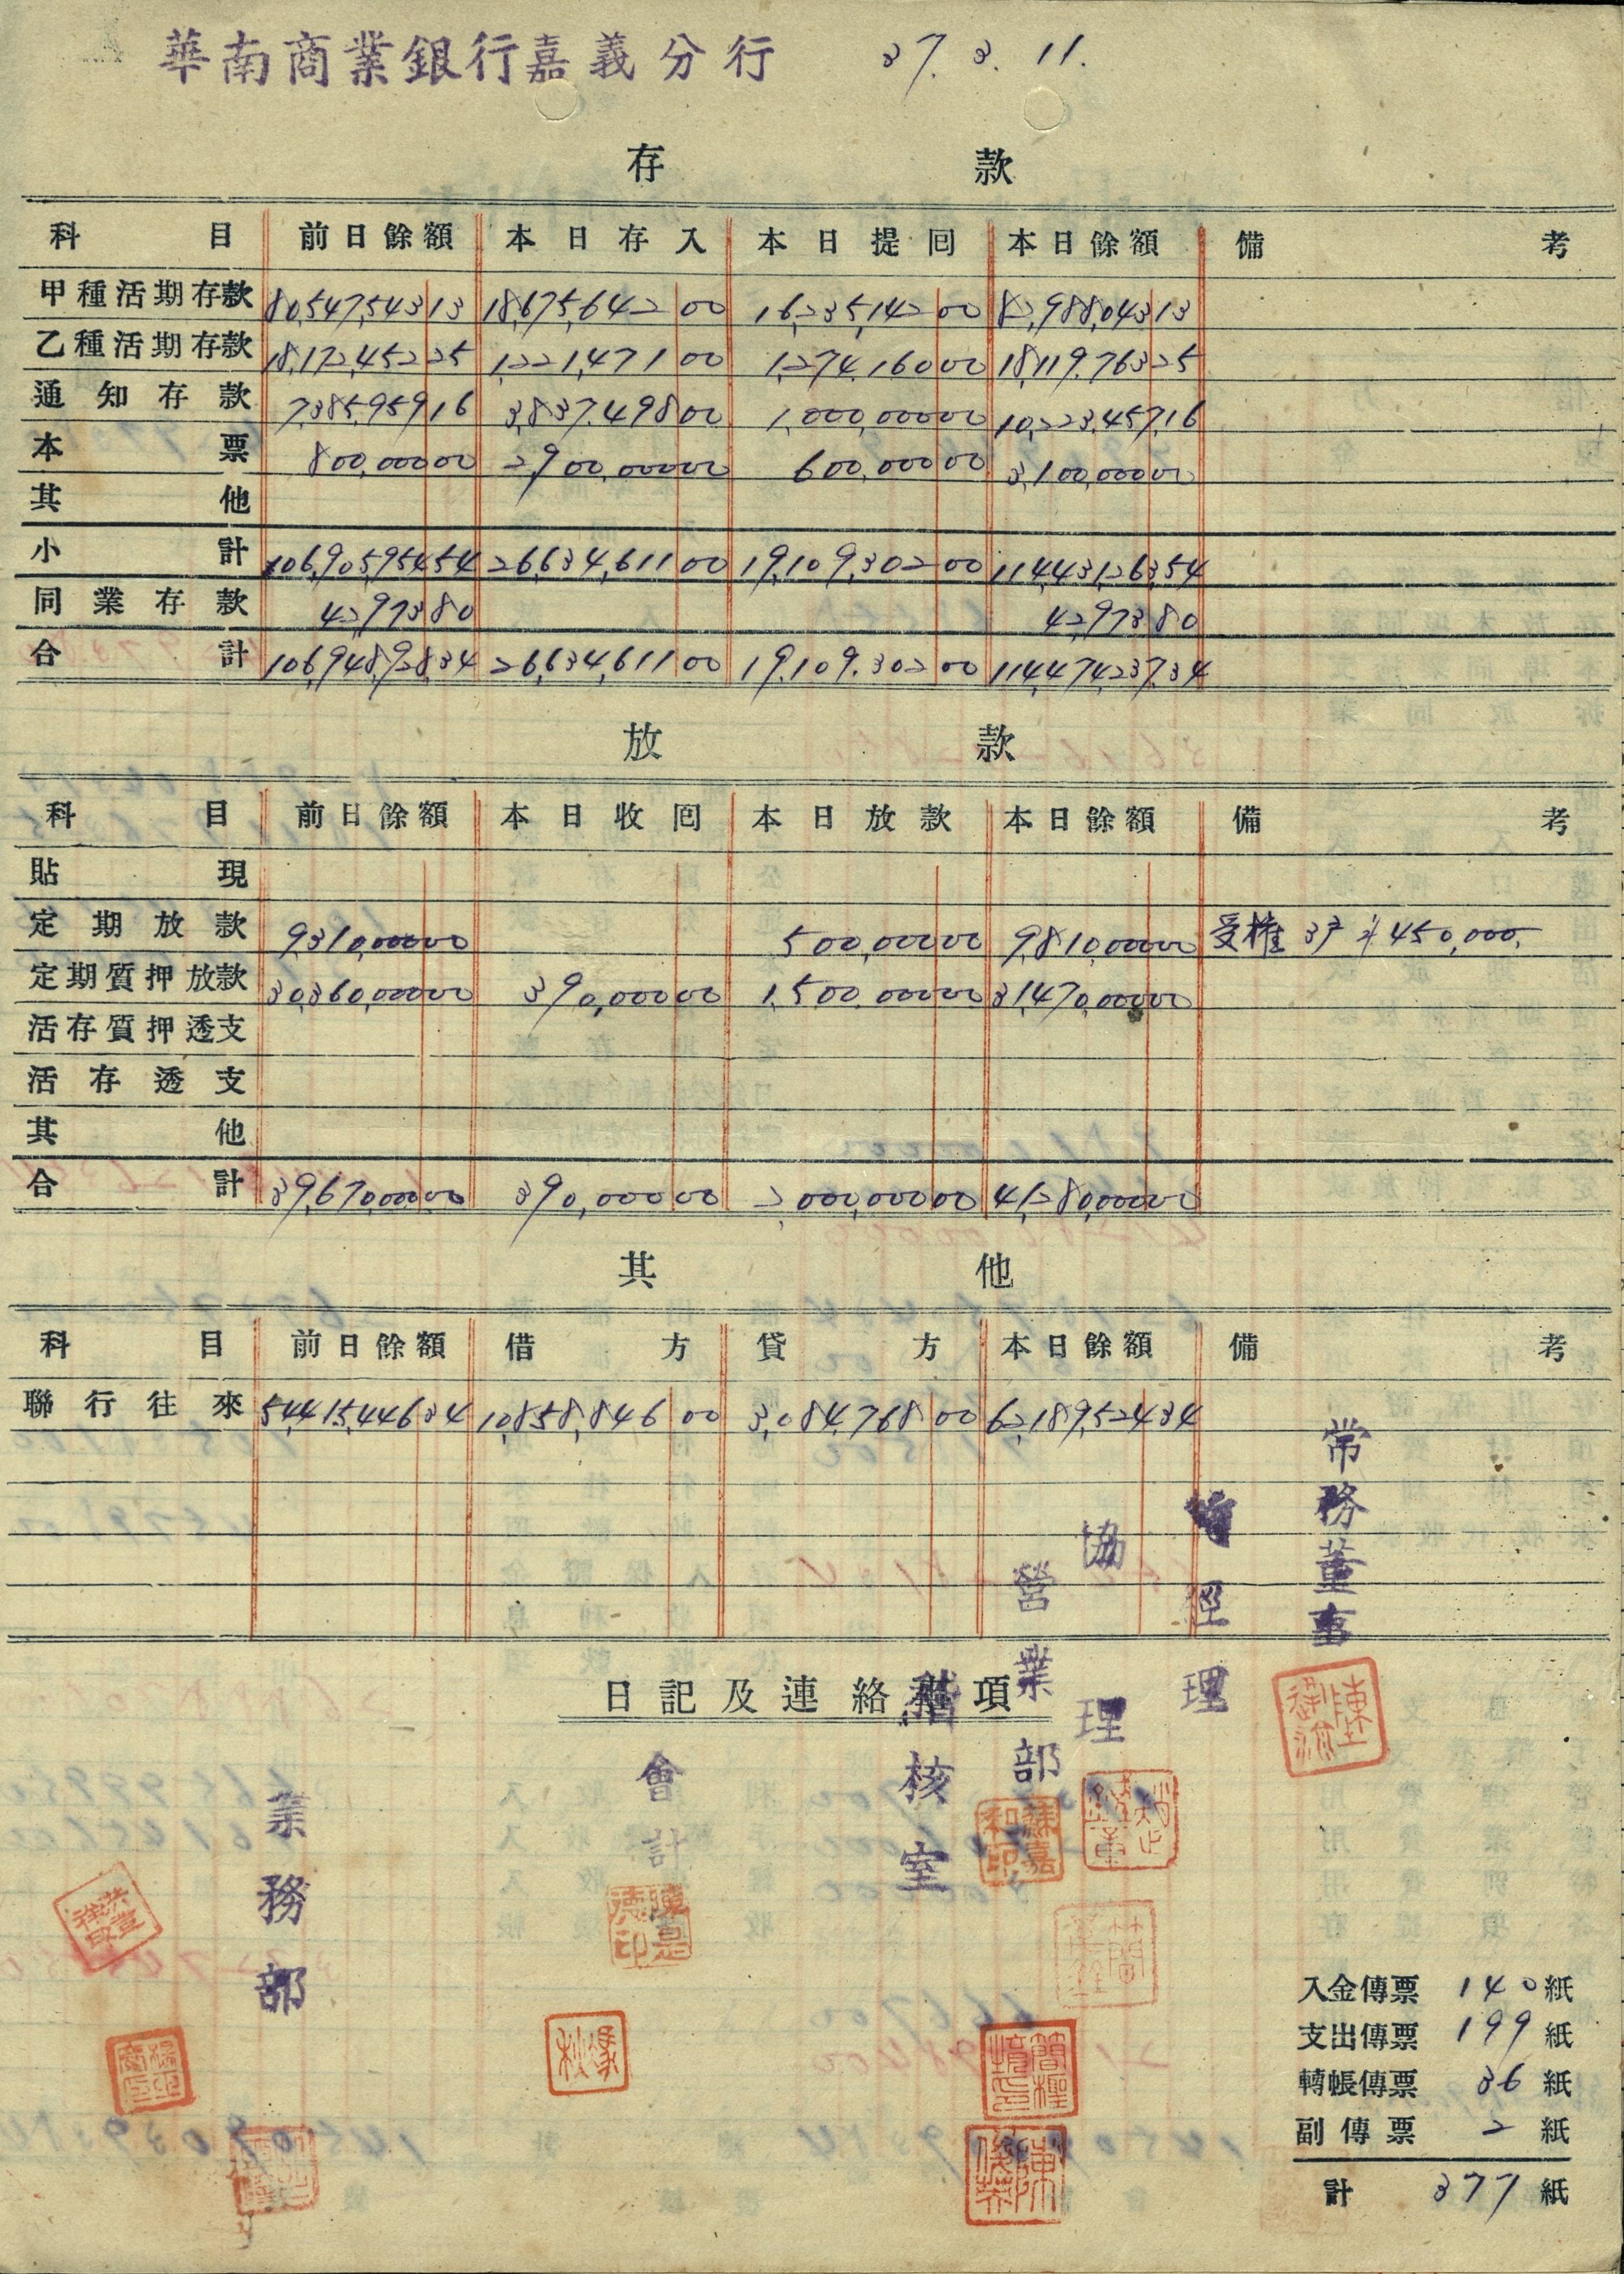 華南商業銀行嘉義分行 37. 3. 11.
存 款
科目 前日餘額 本日存入 本日提囘 本日餘額 備考
甲種活期存款 80,547,543 13 18,675,642 00 16,235,142 00 82,988,043 13
乙種活期存款 18,172,452 25 1,221,471 00 1,274,160 00 18,119,763 25
通知存款 7,385,959 16 3,837,498 00 1,000,000 00 10,223,457 16
本票 800,000 00 2,900,000 00 600,000 00 3,100,000 00
其他
小計 106,905,954 54 26,634,611 00 19,109,302 00 114,431,263 54
同業存款 42,973 80 42,973 80
合計 106,948,928 34 26,634,611 00 19,109,302 00 114,474,237 34
放 款
科目 前日餘額 本日收囘 本日放款 本日餘額 備考
貼現
定期放款 9,310,000 00 500,000 00 9,810,000 00 受權 3戶 450,000.
定期質押放款 30,360,000 00 390,000 00 1,500,000 00 31,470,000 00
活存質押透支
活存透支
其他
合計 39,670,000 00 390,000 00 2,000,000 00 41,280,000 00
其 他
科目 前日餘額 借方 貸方 本日餘額 備考
聯行往來 54,415,446 34 10,858,846 00 3,084,768 00 62,189,524 34
日記及連絡事項
常務董事
經理
協理
營業部
稽核室
會計
業務部
蘇嘉和印
馮秋
入金傳票 140 紙
支出傳票 199 紙
轉帳傳票 36 紙
副傳票 2 紙
計 377 紙